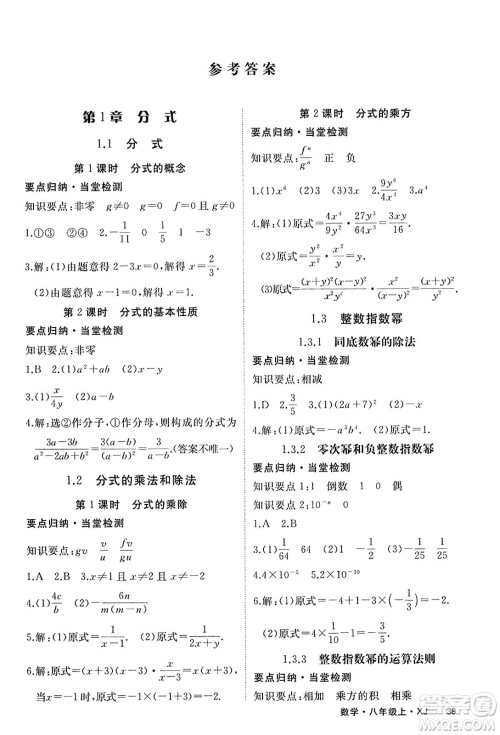 参考答案
第1章 分 式
1.1 分 式
第1课时 分式的概念
要点归纳·当堂检测
知识要点:非零 g≠0 g=0 f=0且g≠0
1.①③ ②④ 2.-1/11 0 1/5 1
3.解:(1)由题意得2-3x=0,解得x=2/3.
(2)由题意得x-1=0,解得x=1.
第2课时 分式的基本性质
要点归纳·当堂检测
知识要点:非零
1.B 2.(1)a²+ab (2)x
3.(1)x/4y (2)a-b
4.解:选②作分子,①作分母,则构成的分式为
(3a-3b)/(a²-2ab+b²)=3(a-b)/(a-b)²=3/(a-b).(答案不唯一)
1.2 分式的乘法和除法
第1课时 分式的乘除
要点归纳·当堂检测
知识要点:gv v/u v/u fv/gu
1.A 2.D 3.x≠1且x≠-1
4.(1)4c/b (2)-6n/m(m-n)
5.解:原式=1/(x+1).
6.解:原式=(x+3)(x-3)=x²-9.
当x=-1时,原式=(-1)²-9=-8.
第2课时 分式的乘方
要点归纳·当堂检测
知识要点:fⁿ/gⁿ 正 负
1.(1)x⁶ (2)3 2.A 3.a⁴
4.解:(1)原式=4x⁴/9y²·27y³/64x³=3xy/16.
(2)原式=x²/y²·y³/(-x)³·(-y)/x=y²/x²
(3)原式=(x-y)²(x+y)²/x²y²·x³/(x-y)³·1/(x+y)²=x/y²(x-y).
1.3 整数指数幂
1.3.1 同底数幂的除法
要点归纳·当堂检测
知识要点:相减
1.D 2.-3/2 3.(1)(2a+7b)² (2)-1/m³
1.3.2 零次幂和负整数指数幂
要点归纳·当堂检测
知识要点:1 1 倒数 1 0 偶
2.10⁻ⁿ
1.A 2.(1)1/64 64 1 (2)-1/2 3.0
4.4×10⁻⁵ 5.2.1
6.解:原式=4×1-1/2×(-3/5)×1=4 3/10.
1.3.3 整数指数幂的运算法则
要点归纳·当堂检测
知识要点:相加 乘方的积 相乘
数学·八年级上·XJ 36